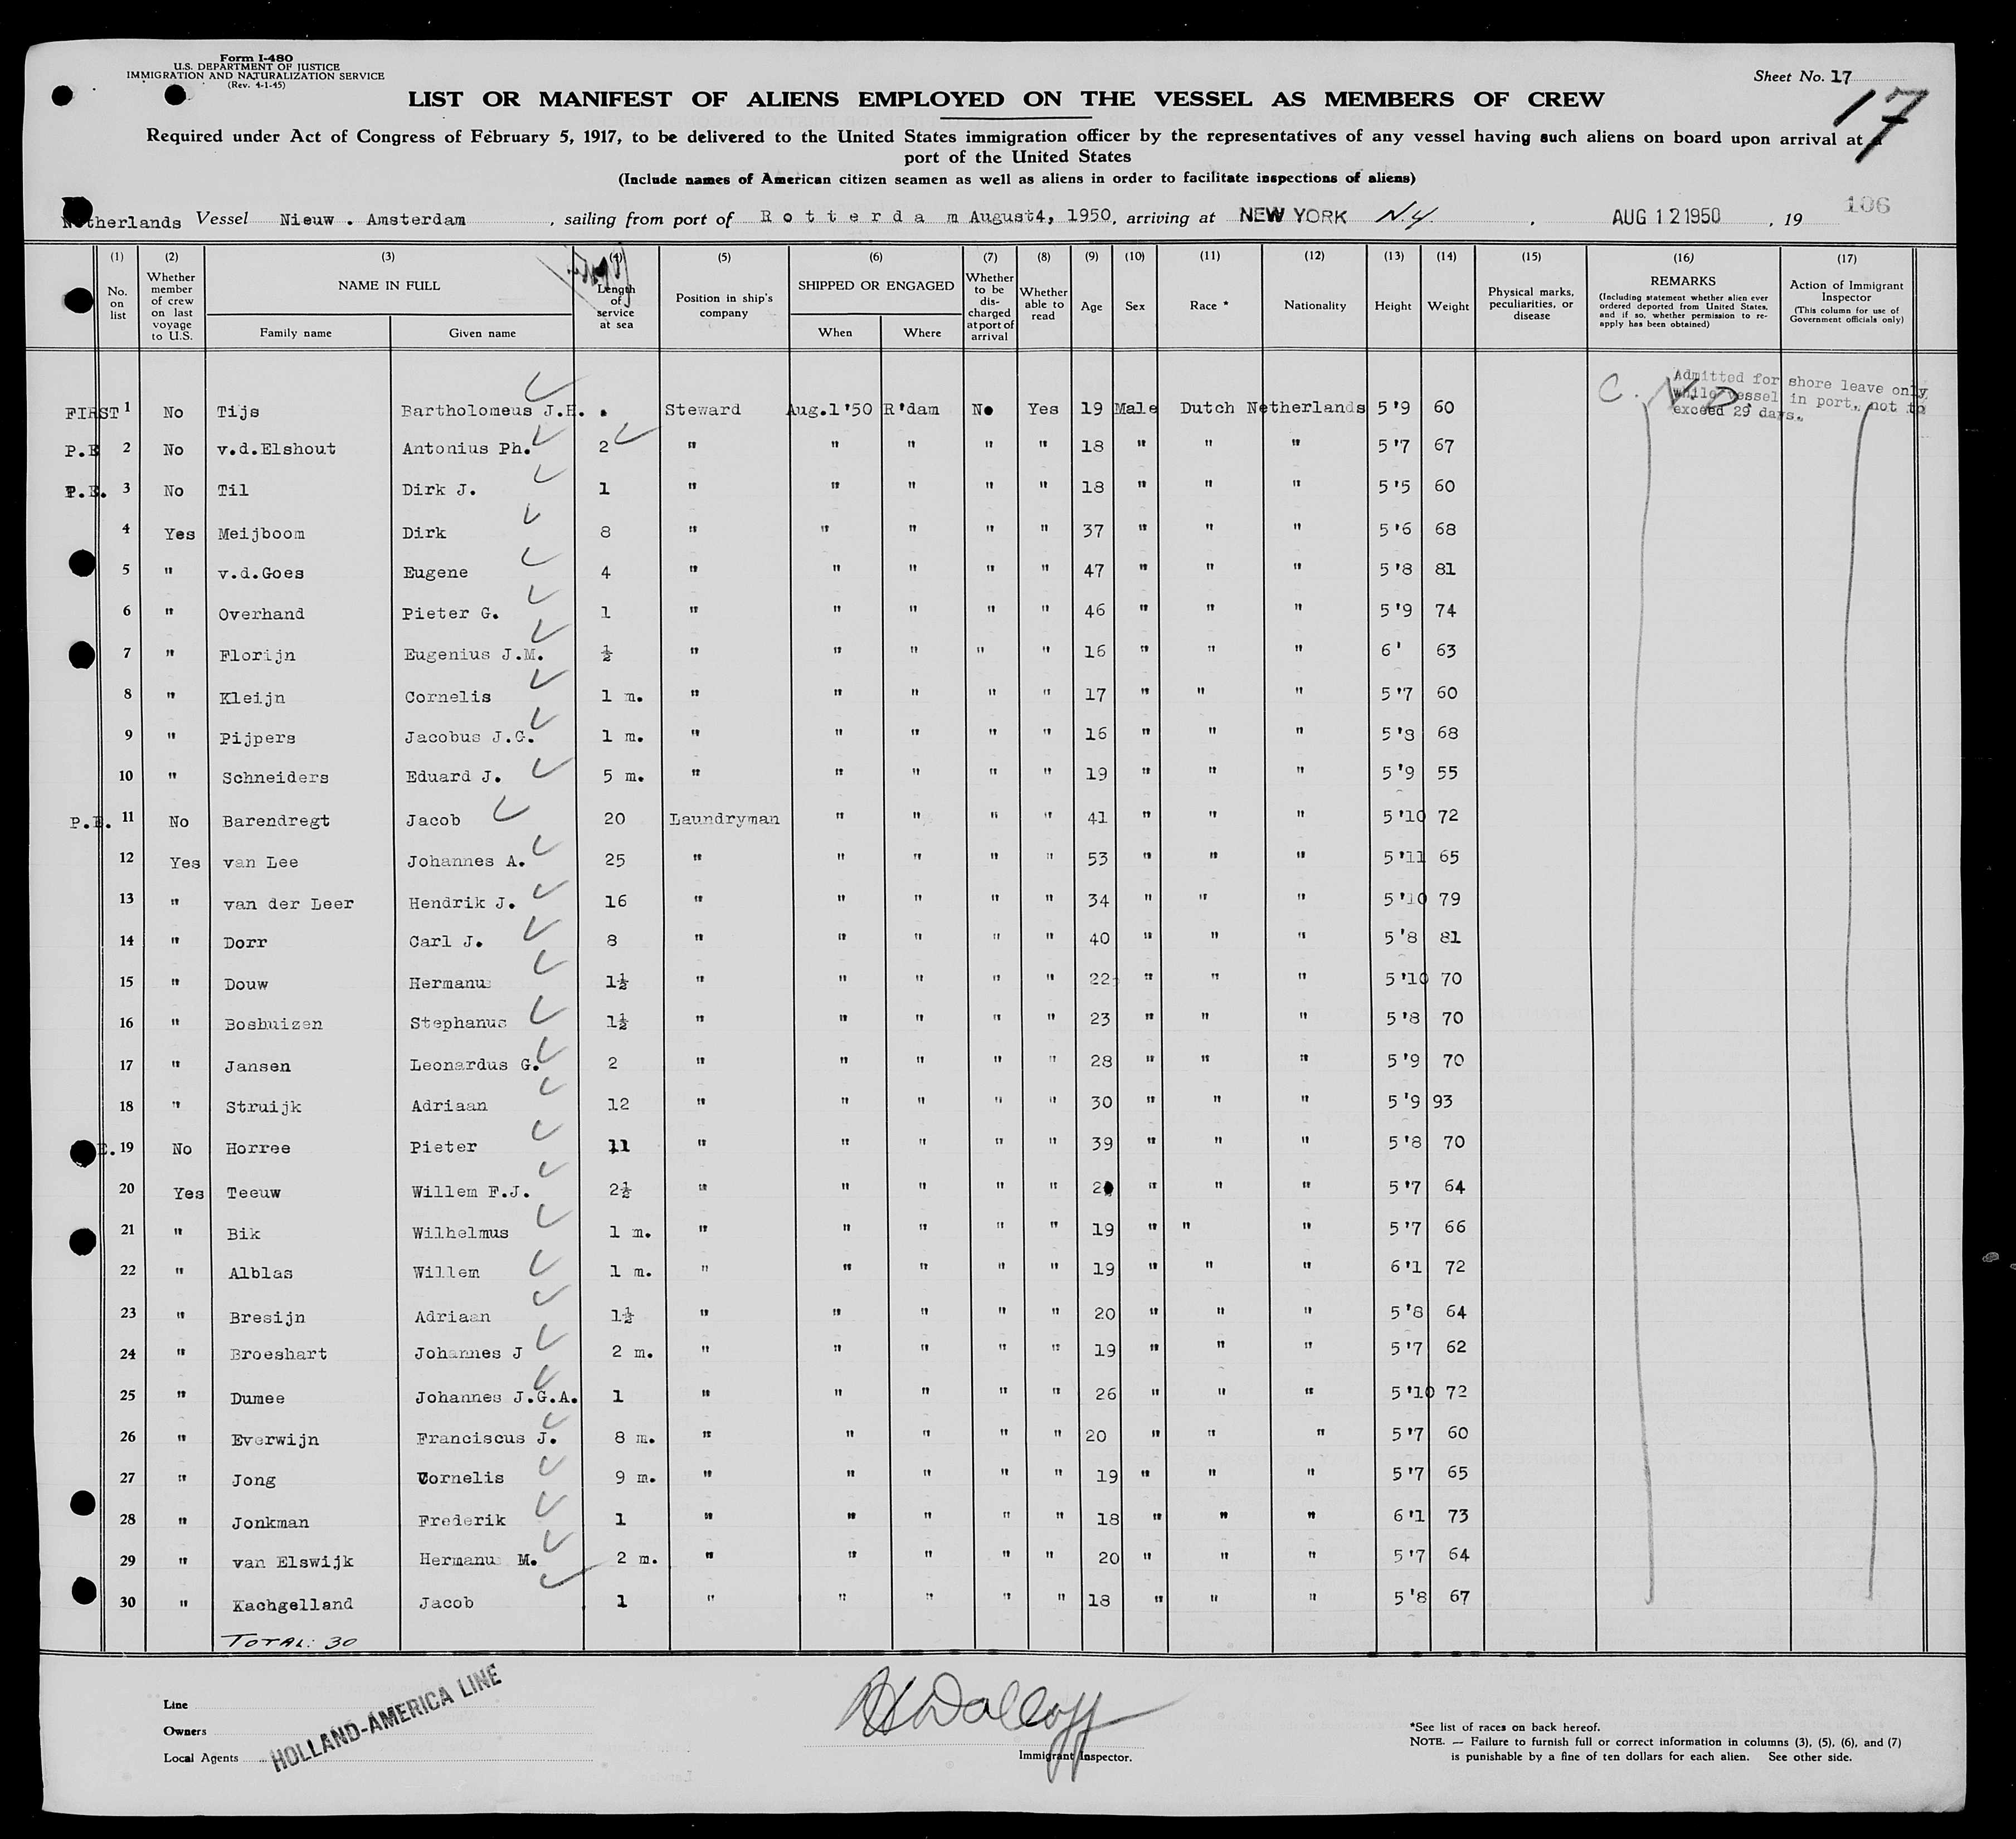 Form I-480
U.S. DEPARTMENT OF JUSTICE
IMMIGRATION AND NATURALIZATION SERVICE
(Rev. 4-1-45)
Sheet No. 17
17
LIST OR MANIFEST OF ALIENS EMPLOYED ON THE VESSEL AS MEMBERS OF CREW
Required under Act of Congress of February 5, 1917, to be delivered to the United States immigration officer by the representatives of any vessel having such aliens on board upon arrival at a
port of the United States
(Include names of American citizen seamen as well as aliens in order to facilitate inspections of aliens)
Netherlands Vessel Nieuw . Amsterdam , sailing from port of Rotterdam August4, 1950, arriving at NEW YORK N.Y. , AUG 12 1950 , 19 106
(1) (2) (3) (4) (5) (6) (7) (8) (9) (10) (11) (12) (13) (14) (15) (16) (17)
No. on list
Whether member of crew on last voyage to U.S.
NAME IN FULL
Family name Given name
Length of service at sea
Position in ship's company
SHIPPED OR ENGAGED
When Where
Whether to be discharged at port of arrival
Whether able to read
Age Sex Race * Nationality Height Weight
Physical marks, peculiarities, or disease
REMARKS
(Including statement whether alien ever ordered deported from United States, and if so, whether permission to reapply has been obtained)
Action of Immigrant Inspector
(This column for use of Government officials only)
Admitted for shore leave only
while vessel in port, not to
exceed 29 days.
FIRST 1 No Tijs Bartholomeus J.H. . Steward Aug.1'50 R'dam No Yes 19 Male Dutch Netherlands 5'9 60
P.E 2 No v.d.Elshout Antonius Ph. 2 " " " " " 18 " " " 5'7 67
P.E. 3 No Til Dirk J. 1 " " " " " 18 " " " 5'5 60
4 Yes Meijboom Dirk 8 " " " " " 37 " " " 5'6 68
5 " v.d.Goes Eugene 4 " " " " " 47 " " " 5'8 81
6 " Overhand Pieter G. 1 " " " " " 46 " " " 5'9 74
7 " Florijn Eugenius J.M. ½ " " " " " 16 " " " 6' 63
8 " Kleijn Cornelis 1 m. " " " " " 17 " " " 5'7 60
9 " Pijpers Jacobus J.G. 1 m. " " " " " 16 " " " 5'8 68
10 " Schneiders Eduard J. 5 m. " " " " " 19 " " " 5'9 55
P.E. 11 No Barendregt Jacob 20 Laundryman " " " " 41 " " " 5'10 72
12 Yes van Lee Johannes A. 25 " " " " " 53 " " " 5'11 65
13 " van der Leer Hendrik J. 16 " " " " " 34 " " " 5'10 79
14 " Dorr Carl J. 8 " " " " " 40 " " " 5'8 81
15 " Douw Hermanus 1½ " " " " " 22 " " " 5'10 70
16 " Boshuizen Stephanus 1½ " " " " " 23 " " " 5'8 70
17 " Jansen Leonardus G. 2 " " " " " 28 " " " 5'9 70
18 " Struijk Adriaan 12 " " " " " 30 " " " 5'9 93
E. 19 No Horree Pieter 11 " " " " " 39 " " " 5'8 70
20 Yes Teeuw Willem F.J. 2½ " " " " " " " " 5'7 64
21 " Bik Wilhelmus 1 m. " " " " " 19 " " " 5'7 66
22 " Alblas Willem 1 m. " " " " " 19 " " " 6'1 72
23 " Bresijn Adriaan 1½ " " " " " 20 " " " 5'8 64
24 " Broeshart Johannes J 2 m. " " " " " 19 " " " 5'7 62
25 " Dumee Johannes J.G.A. 1 " " " " " 26 " " " 5'10 72
26 " Everwijn Franciscus J. 8 m. " " " " " 20 " " " 5'7 60
27 " Jong Cornelis 9 m. " " " " " 19 " " " 5'7 65
28 " Jonkman Frederik 1 " " " " " 18 " " " 6'1 73
29 " van Elswijk Hermanus M. 2 m. " " " " " 20 " " " 5'7 64
30 " Kachgelland Jacob 1 " " " " " 18 " " " 5'8 67
TOTAL: 30
Line
Owners
Local Agents
HOLLAND-AMERICA LINE
Immigrant Inspector.
*See list of races on back hereof.
NOTE. — Failure to furnish full or correct information in columns (3), (5), (6), and (7)
is punishable by a fine of ten dollars for each alien. See other side.